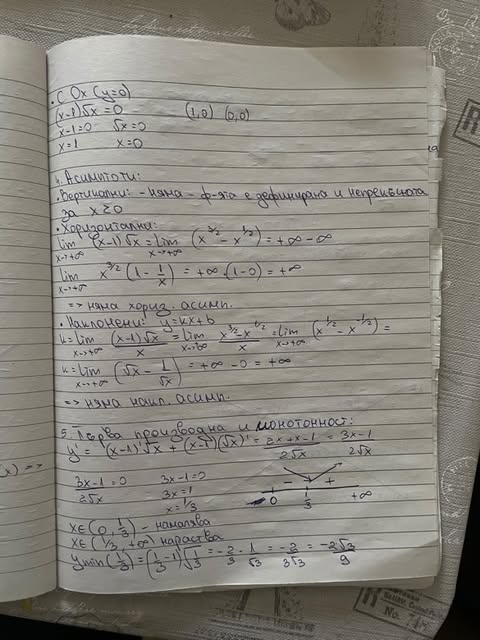 • С Ox (y=0)
(x-1)√x = 0 (1,0) (0,0)
x-1=0 √x=0
x=1 x=0
4. Асимптоти:
• Вертикални: - няма - ф-ята е дефинирана и непрекъсната
за x≥0
• Хоризонтални:
lim x→+∞ (x-1)√x = lim x→+∞ (x^3/2 - x^1/2) = +∞ - ∞
lim x→+∞ x^3/2 (1 - 1/x) = +∞.(1-0) = +∞
=> няма хориз. асимп.
• Наклонени: y=kx+b
k = lim x→+∞ (x-1)√x / x = lim x→+∞ (x^3/2 - x^1/2) / x = lim x→+∞ (x^1/2 - x^-1/2) =
k = lim x→+∞ (√x - 1/√x) = +∞ - 0 = +∞
=> няма накл. асимп.
5. Първа производна и монотонност:
y' = (x-1)'√x + (x-1)(√x)' = (2x+x-1)/(2√x) = (3x-1)/(2√x)
(x) =>
(3x-1)/(2√x) = 0 3x-1=0 - +
3x=1 0 1/3 +∞
x=1/3
x∈(0, 1/3) - намалява
x∈(1/3, +∞) нараства
y min (1/3) = (1/3 - 1)√(1/3) = -2/3 . 1/√3 = -2/(3√3) = -2√3/9
R
No.